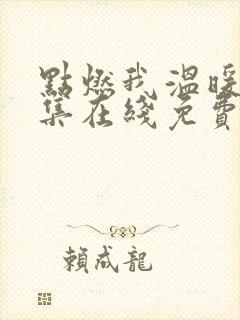 點燃我 溫暖
集在綫免費
賴成龍